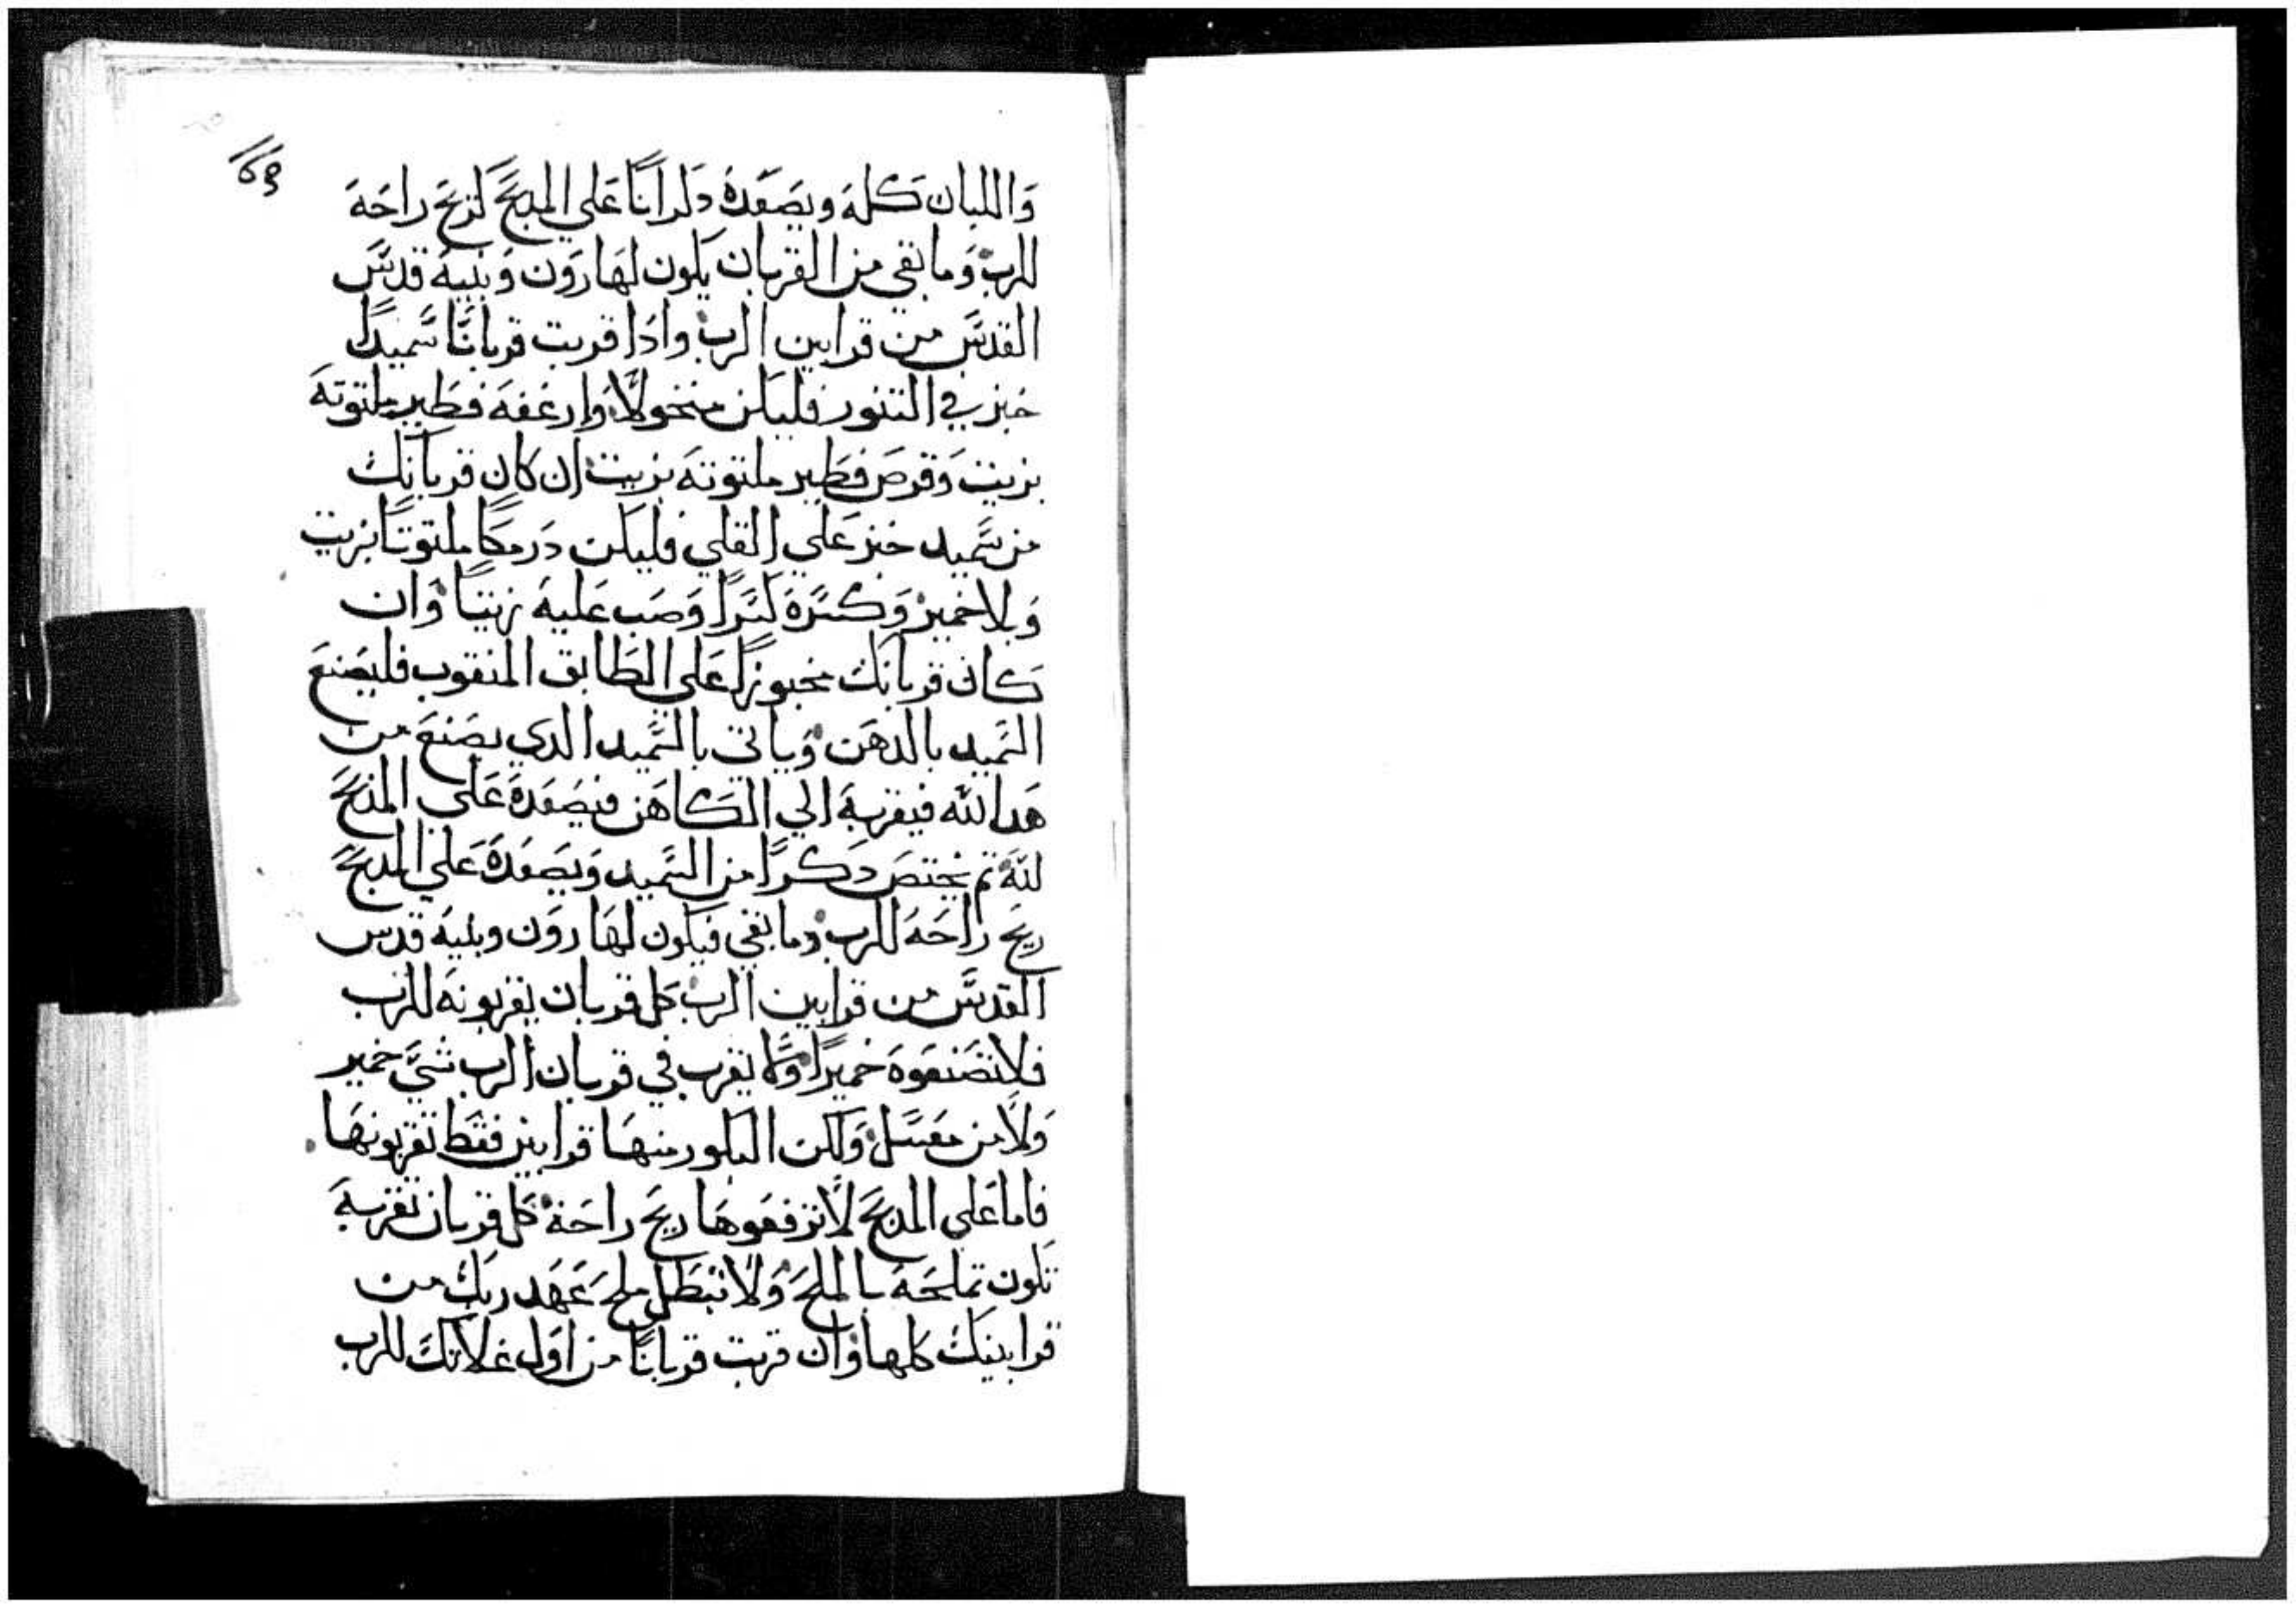 169
وَاللبان كلهَ ويصَعَدهُ دكرانًا عَلي المدبحَ لريحَ راحَهَ
للربَ وَما بقي من القربان يكون لهَارَون وَبنيهُ قدسَ
القدسَ من قرابين الربَ وادَا قربت قربانًا سَميدًا
خبز في التنور فليكن منخولاً وارغفهَ فطير ملتوتهَ
بزيت وَقرصَ فطير ملتوتهَ بزيت ان كان قربانك
من سَميد خبز عَلي القلي فليكن دَرمكًا ملتوتًا بزيت
وَبلا خمير وَكسَرهَ كسَرًا وَصَب عَليهَ زيتًا وَان
كان قربانك مخبوزًا عَلي الطابق المنقوب فليصَنعَ
السَميد بالدهَن وَياتي بالسَميد الدي يصَنعَ من
هَدا لله فيقربهَ الي الكاهَن فيصَعَدهَ عَلي المدبحَ
للهَ تم يختصَ دَكرًا من السَميد وَيصَعَدهَ عَلي المدبحَ
ريحَ راحَهَ للرب وما بقي فيكون لهَارَون وبنيهَ قدس
القدسَ من قرابين الربَ كل قربان يقربونهَ للرب
فلا تصَنعَوهَ خميرًا وَلا يقرب في قربان الرب شيَ خمير
وَلا من معَسَل وَلكن البكور منهَا قرابين فقط تقربونهَا
فاما عَلي المدبحَ لا ترفعَوهَا ريحَ راحَة كل قربان تقربهَ
تكون تملحَهَ بالملحَ وَلا تبطل ملحَ عَهَد ربك من
قرابينك كلها وَان قربت قربانًا من اوَل غلاتك للرب